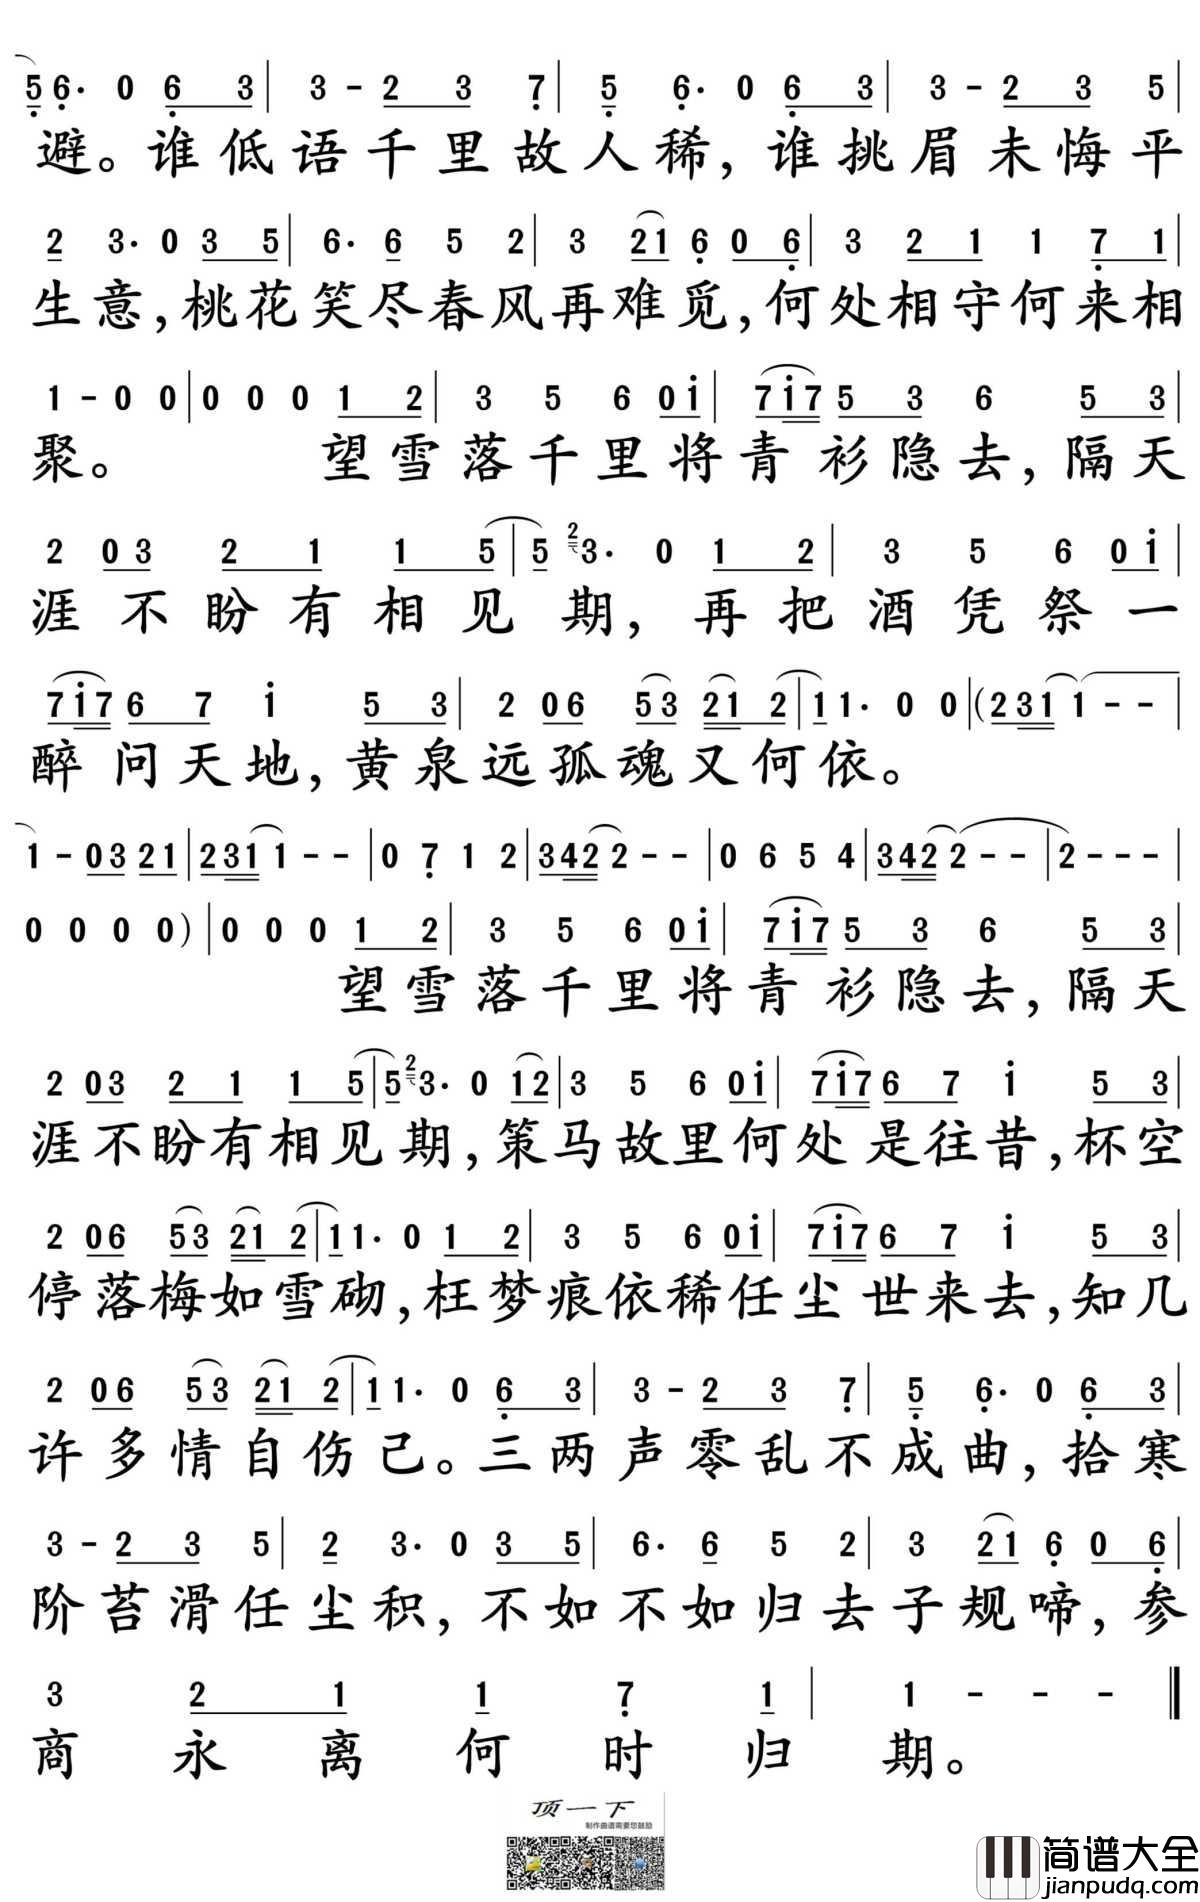 5 6· 0 6 3 | 3 - 2 3 7 | 5 6· 0 6 3 | 3 - 2 3 5 |
避。谁低语千里故人稀，谁挑眉未悔平
2 3· 0 3 5 | 6· 6 5 2 | 3 21 6 0 6 | 3 2 1 1 7 1 |
生意，桃花笑尽春风再难觅，何处相守何来相
1 - 0 0 | 0 0 0 1 2 | 3 5 6 0 i | 7i7 5 3 6 5 3 |
聚。 望雪落千里将青衫隐去，隔天
2 0 3 2 1 1 5 | 5 2 3· 0 1 2 | 3 5 6 0 i |
涯不盼有相见期，再把酒凭祭一
7i7 6 7 i 5 3 | 2 06 53 21 2 | 1 1· 0 0 | (2 31 1 - -
醉问天地，黄泉远孤魂又何依。
1 - 03 21 | 231 1 - - | 0 7 1 2 | 342 2 - - | 0 6 5 4 | 342 2 - - | 2 - - - |
0 0 0 0) | 0 0 0 1 2 | 3 5 6 0 i | 7i7 5 3 6 5 3 |
望雪落千里将青衫隐去，隔天
2 03 2 1 1 5 | 5 2 3· 0 12 | 3 5 6 0i | 7i7 6 7 i 5 3 |
涯不盼有相见期，策马故里何处是往昔，杯空
2 06 53 21 2 | 1 1· 0 1 2 | 3 5 6 0i | 7i7 6 7 i 5 3 |
停落梅如雪砌，枉梦痕依稀任尘世来去，知几
2 06 53 21 2 | 1 1· 0 6 3 | 3 - 2 3 7 | 5 6· 0 6 3 |
许多情自伤己。三两声零乱不成曲，拾寒
3 - 2 3 5 | 2 3· 0 3 5 | 6· 6 5 2 | 3 21 6 0 6 |
阶苔滑任尘积，不如不如归去子规啼，参
3 2 1 1 7 1 | 1 - - - ‖
商永离何时归期。
顶一下
制作曲谱需要您鼓励
简谱大全
jianpudq.com